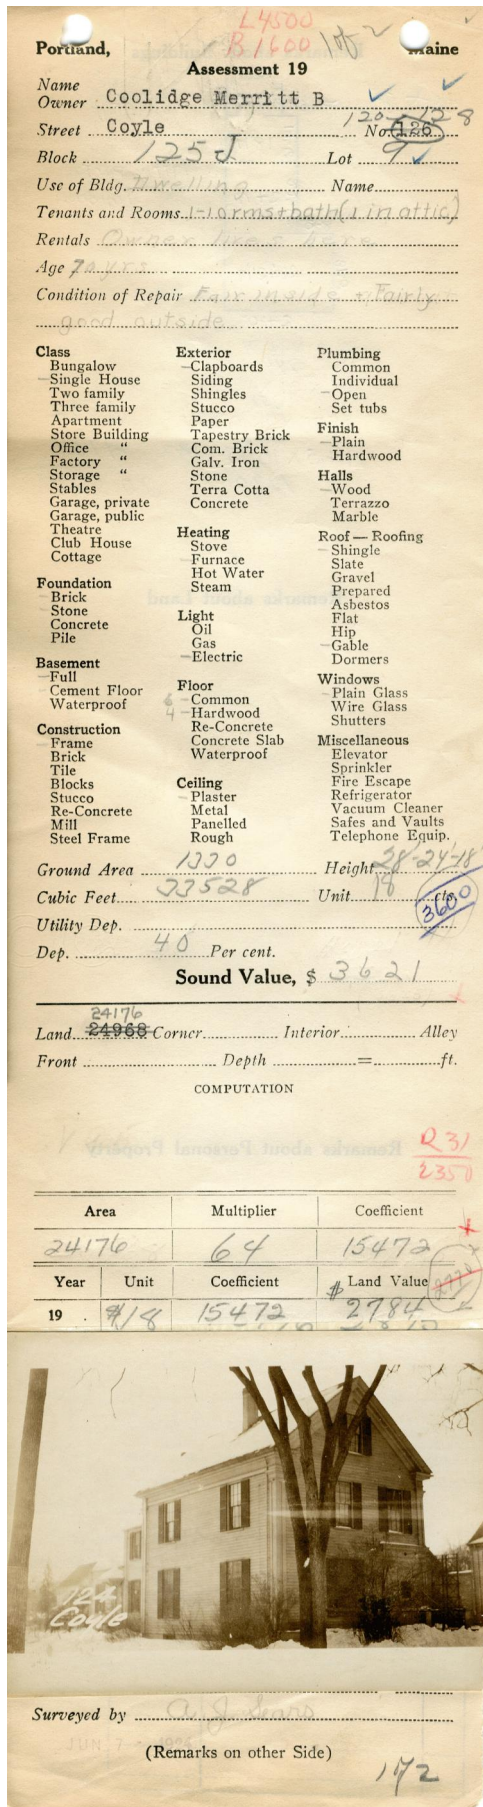 L 4500
B 1600
1 of 2
Portland, Maine
Assessment 19
Name
Owner Coolidge Merritt B
120-128
Street Coyle No. 126
Block 125 J Lot 9
Use of Bldg. Dwelling Name
Tenants and Rooms 1-10 rms+bath (1 in attic)
Rentals Owner lives here
Age 70 yrs
Condition of Repair Fair inside + Fairly
good outside
Class
Bungalow
Single House
Two family
Three family
Apartment
Store Building
Office "
Factory "
Storage "
Stables
Garage, private
Garage, public
Theatre
Club House
Cottage
Foundation
Brick
Stone
Concrete
Pile
Basement
Full
Cement Floor
Waterproof
Construction
Frame
Brick
Tile
Blocks
Stucco
Re-Concrete
Mill
Steel Frame
Exterior
Clapboards
Siding
Shingles
Stucco
Paper
Tapestry Brick
Com. Brick
Galv. Iron
Stone
Terra Cotta
Concrete
Heating
Stove
Furnace
Hot Water
Steam
Light
Oil
Gas
Electric
Floor
6 Common
4 Hardwood
Re-Concrete
Concrete Slab
Waterproof
Ceiling
Plaster
Metal
Panelled
Rough
Plumbing
Common
Individual
Open
Set tubs
Finish
Plain
Hardwood
Halls
Wood
Terrazzo
Marble
Roof — Roofing
Shingle
Slate
Gravel
Prepared
Asbestos
Flat
Hip
Gable
Dormers
Windows
Plain Glass
Wire Glass
Shutters
Miscellaneous
Elevator
Sprinkler
Fire Escape
Refrigerator
Vacuum Cleaner
Safes and Vaults
Telephone Equip.
Ground Area 1330 Height 28-24-18
Cubic Feet 33528 Unit 18 cts.
3600
Utility Dep.
Dep. 40 Per cent.
Sound Value, $ 3621
24176
Land 24968 Corner Interior Alley
Front Depth = ft.
COMPUTATION
R 31
2350
Area Multiplier Coefficient
24176 64 15472
Year Unit Coefficient Land Value
19 $18 15472 $2784
124
Coyle
Surveyed by A. J. Sears
JUN 7 1924
(Remarks on other Side)
172